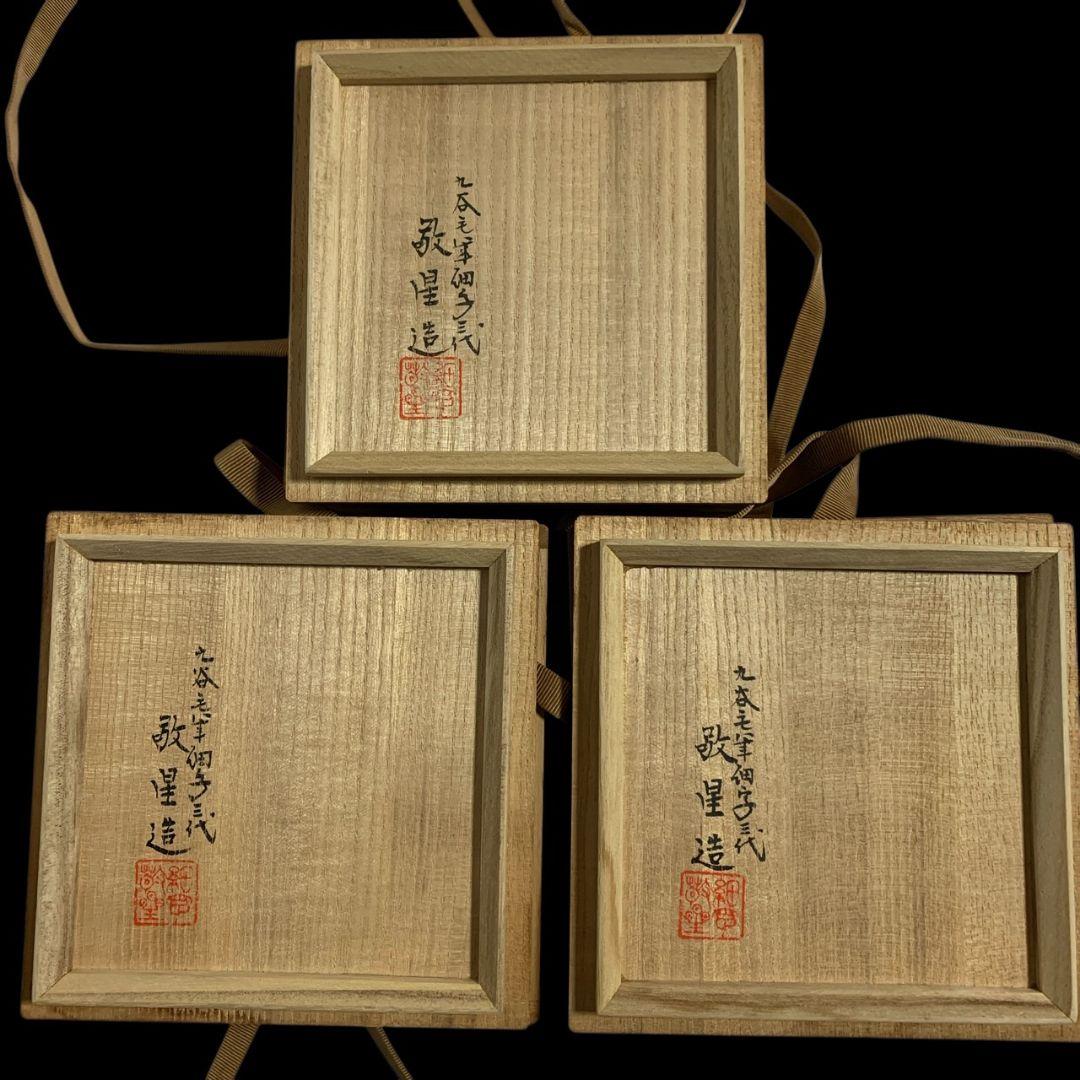 九谷毛筆細字三代
敬星造
九谷毛筆細字三代
敬星造
九谷毛筆細字三代
敬星造